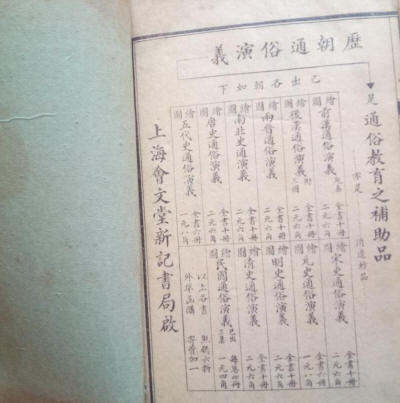 歷朝通俗演義
已出各朝如下
▼是通俗教育之補助品
亦是 消遣妙品
繪圖前漢通俗演義
二元六角
繪圖後漢通俗演義
全書十冊
二元六角
繪圖兩晉通俗演義
全書十冊
二元六角
繪圖南北史通俗演義
全書十冊
二元六角
繪圖唐史通俗演義
全書十冊
二元六角
繪圖五代史通俗演義
全書六冊
一元八角
繪圖宋史通俗演義
全書十冊
二元六角
繪圖元史通俗演義
全書六冊
一元八角
繪圖明史通俗演義
全書十冊
二元六角
繪圖清史通俗演義
全書十冊
二元六角
繪圖民國通俗演義
已出三集
每集四冊
一元四角
以上各書
外埠函購
寄費加一
上海會文堂新記書局啟